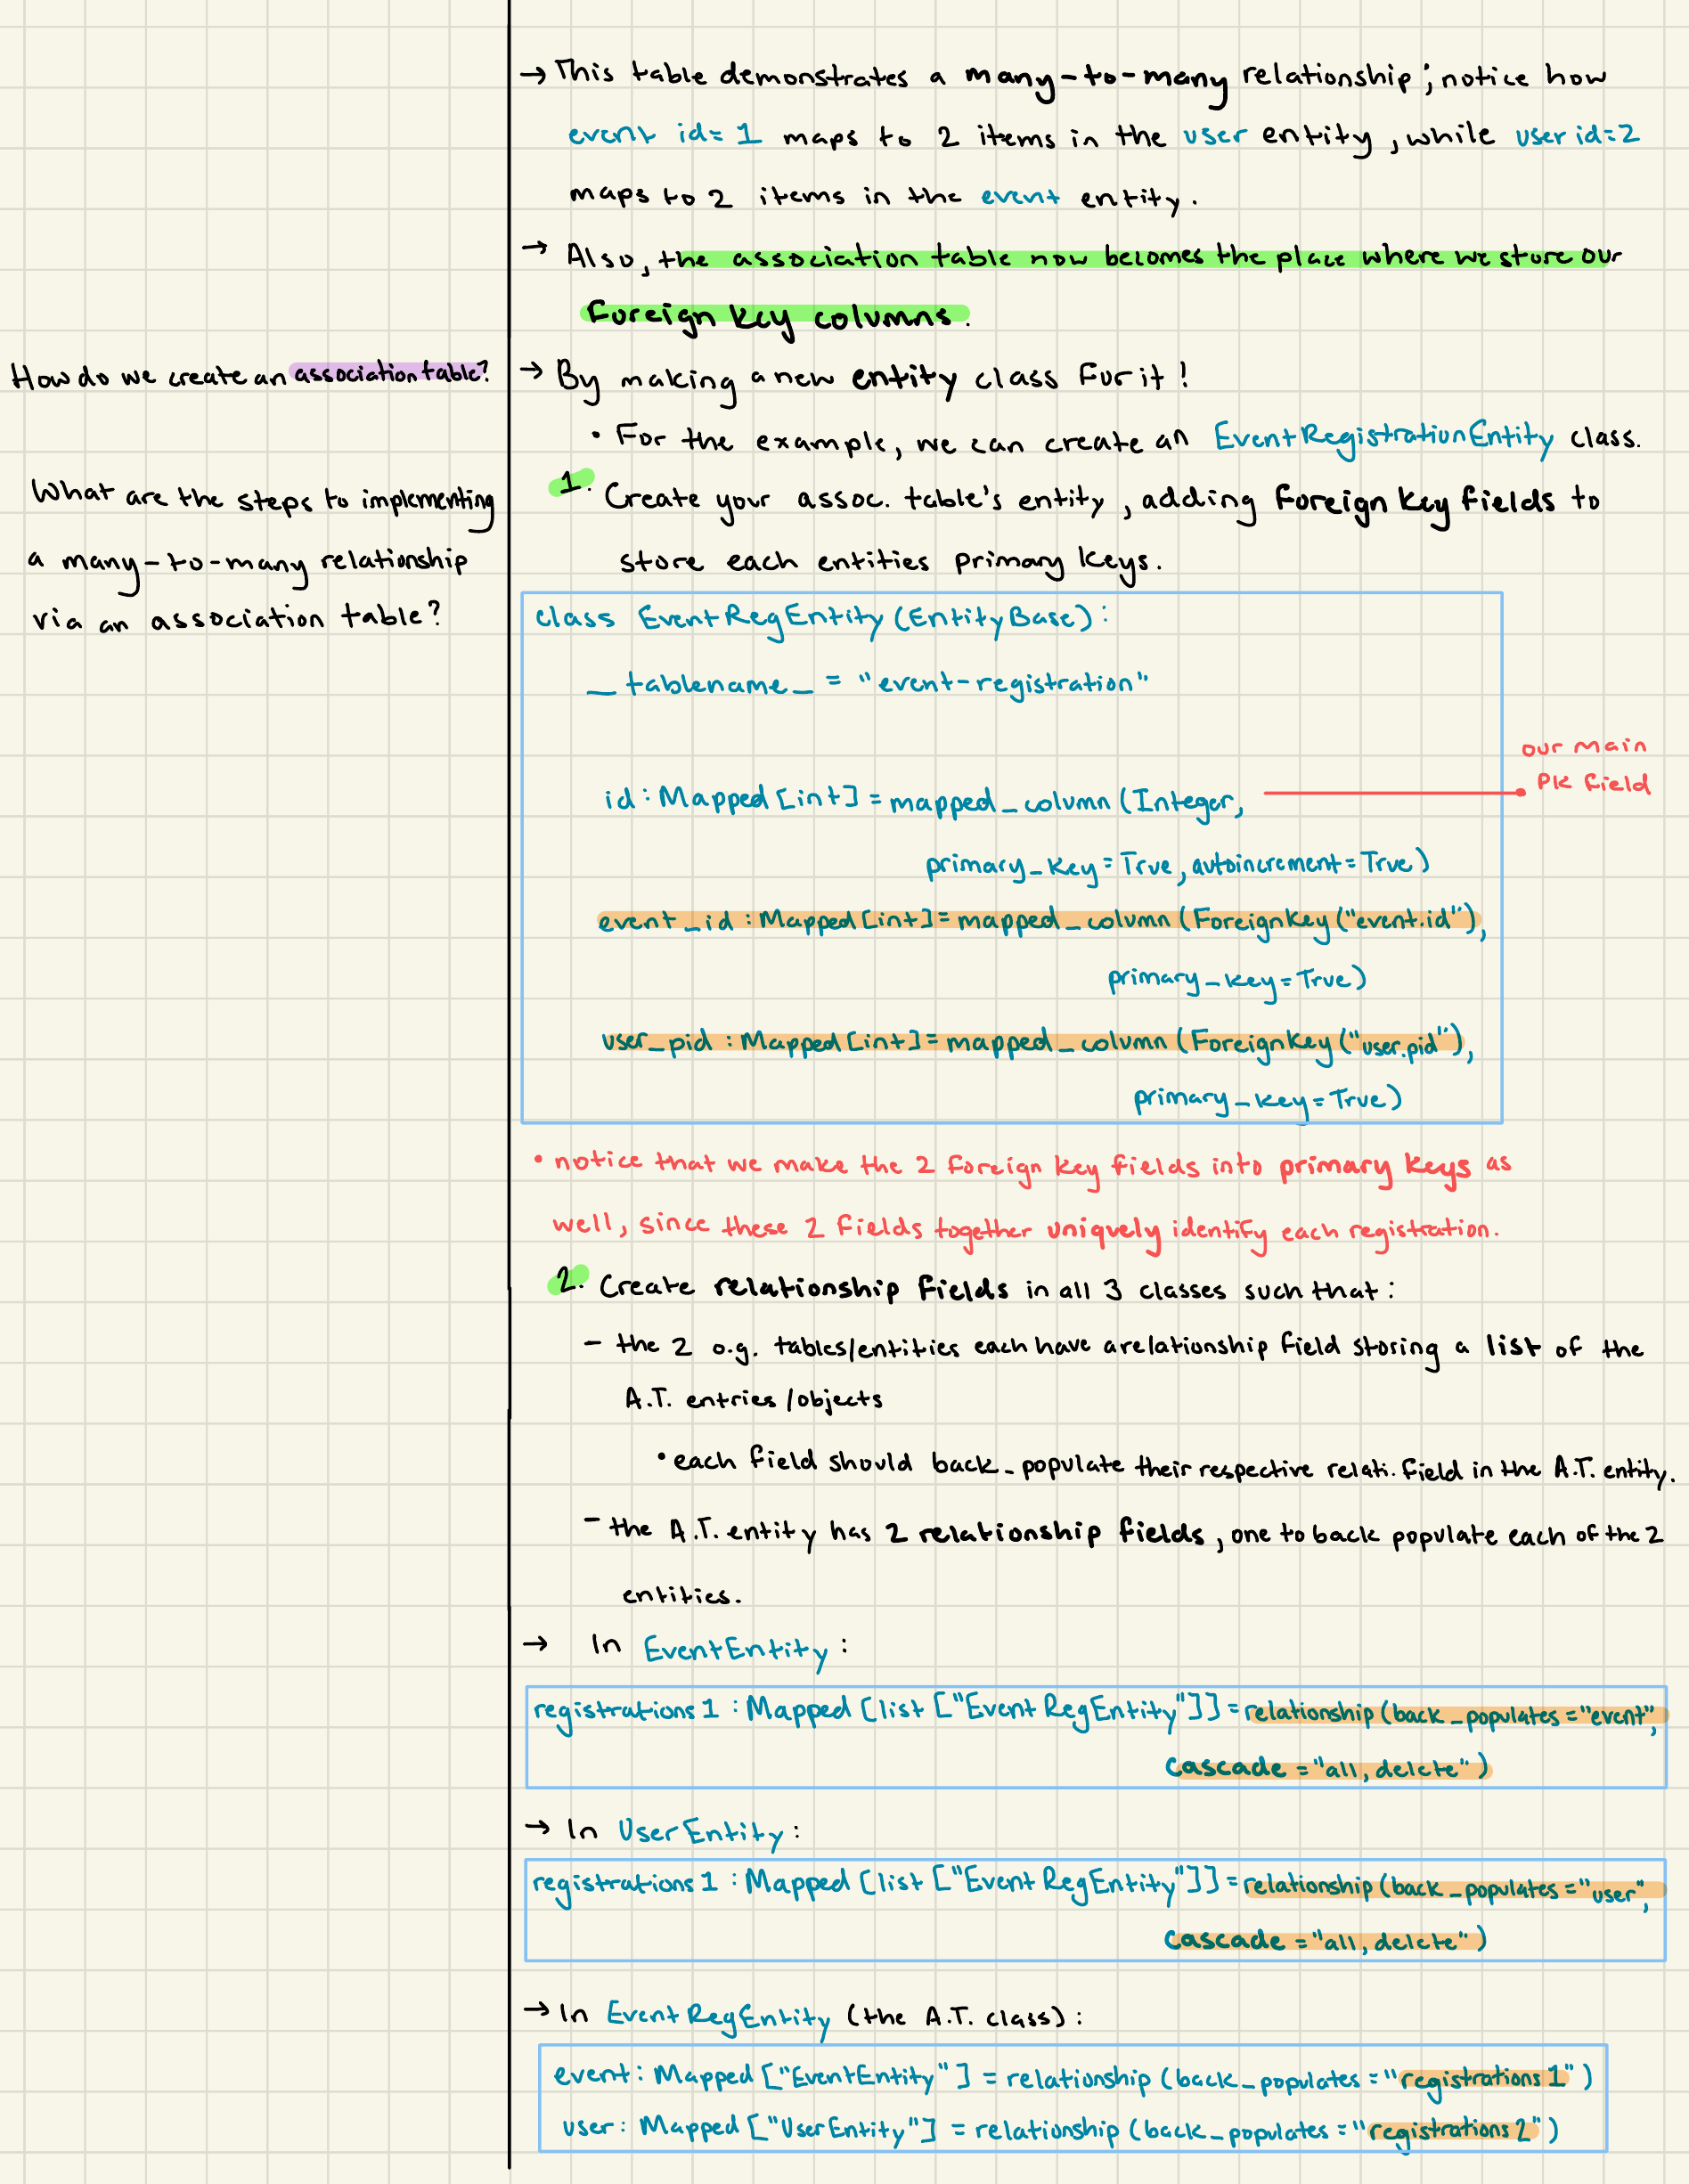 → This table demonstrates a many-to-many relationship; notice how
event id=1 maps to 2 items in the user entity, while user id=2
maps to 2 items in the event entity.
→ Also, the association table now becomes the place where we store our
Foreign key columns.
How do we create an association table?
→ By making a new entity class for it!
• For the example, we can create an EventRegistrationEntity class.
What are the steps to implementing
a many-to-many relationship
via an association table?
1. Create your assoc. table's entity, adding Foreign Key fields to
store each entities primary keys.
class EventRegEntity(EntityBase):
__tablename_ = "event-registration"
id: Mapped[int] = mapped_column(Integer,
our main
PK field
primary_key=True, autoincrement=True)
event_id: Mapped[int] = mapped_column(ForeignKey("event.id"),
primary_key=True)
user_pid: Mapped[int] = mapped_column(ForeignKey("user.pid"),
primary_key=True)
• notice that we make the 2 foreign key fields into primary keys as
well, since these 2 fields together uniquely identify each registration.
2. Create relationship fields in all 3 classes such that:
- the 2 o.g. tables/entities each have a relationship field storing a list of the
A.T. entries/objects
• each field should back_populate their respective relati. field in the A.T. entity.
- the A.T. entity has 2 relationship fields, one to back populate each of the 2
entities.
→ In EventEntity:
registrations1: Mapped[list["EventRegEntity"]] = relationship(back_populates="event",
cascade="all, delete")
→ In UserEntity:
registrations1: Mapped[list["EventRegEntity"]] = relationship(back_populates="user",
cascade="all, delete")
→ In EventRegEntity (the A.T. class):
event: Mapped["EventEntity"] = relationship(back_populates="registrations1")
user: Mapped["UserEntity"] = relationship(back_populates="registrations2")